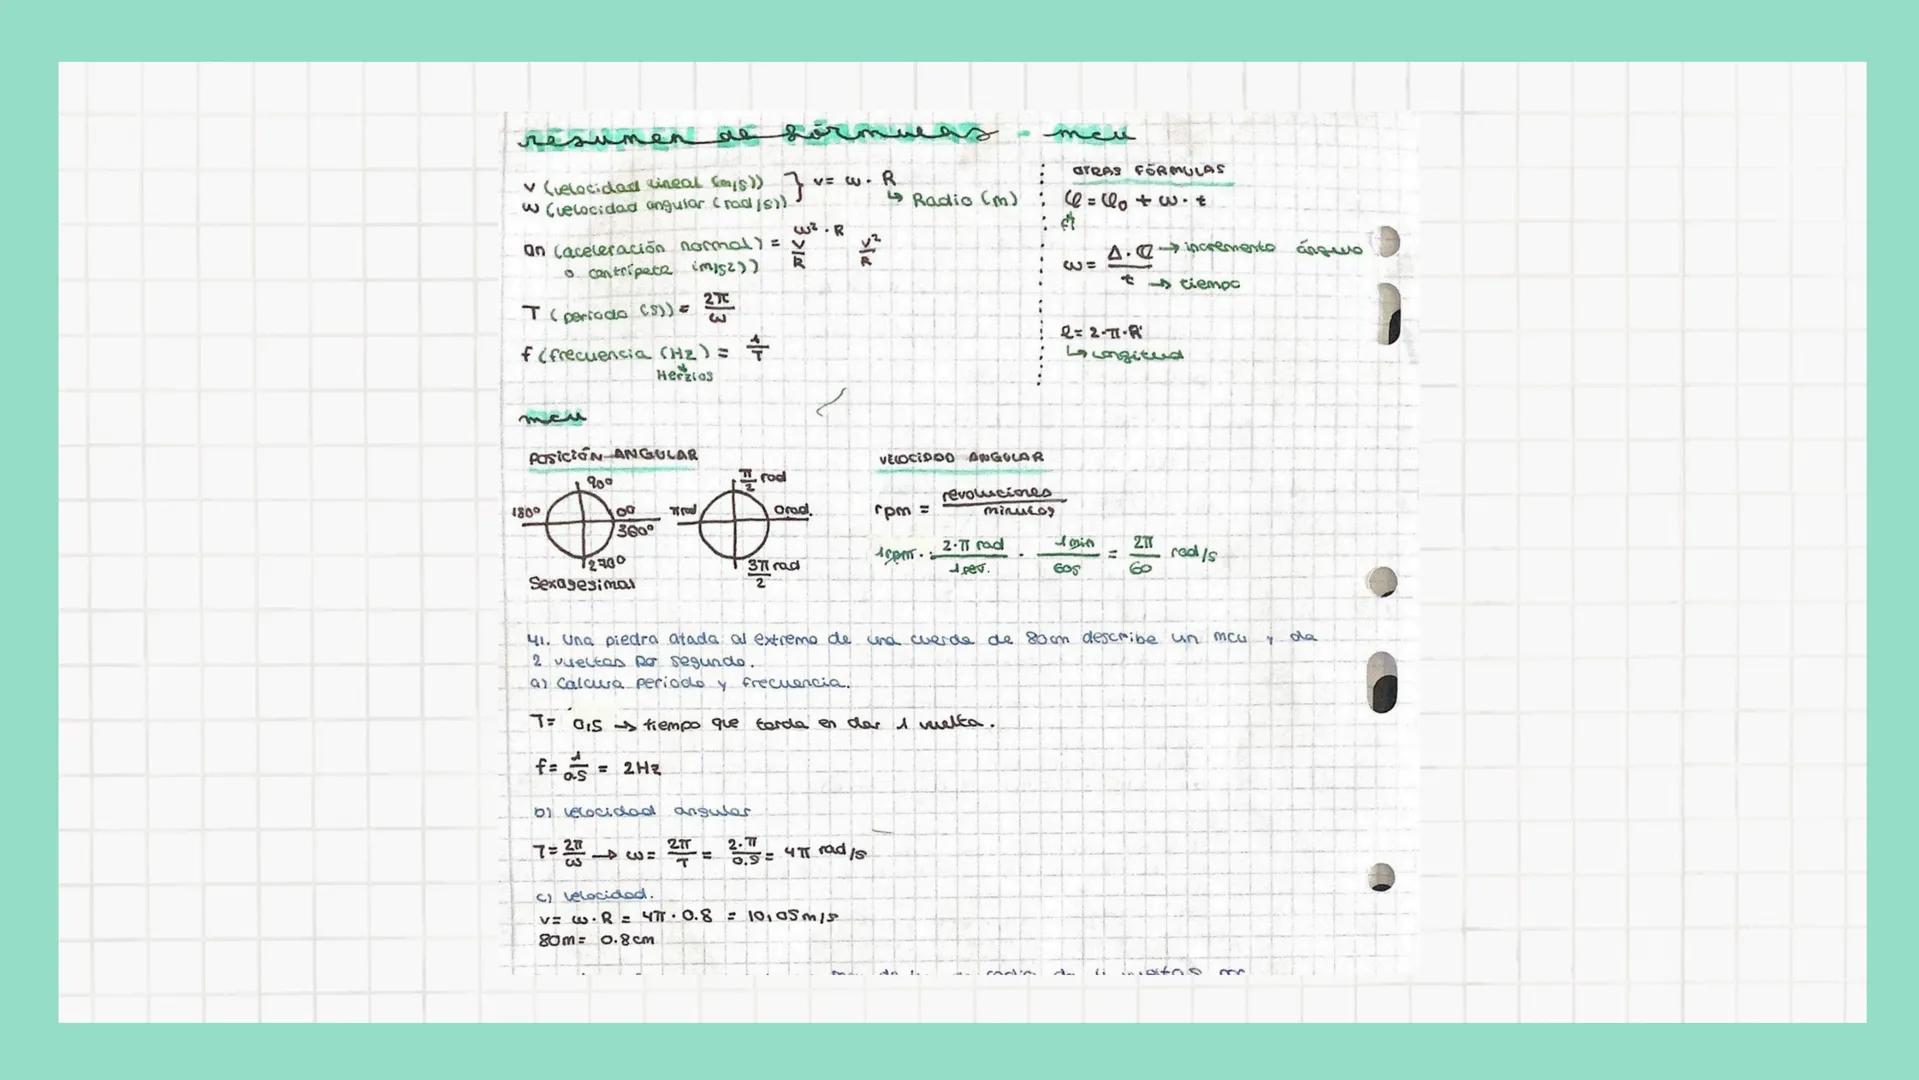 resumen de fórmulas - mcu
v (velocidad lineal (m/s)) } v = ω · R
ω (velocidad angular (rad/s)) ↳ Radio (m)
an (aceleración normal) = ω² · R v/R v²/R
o centrípeta (m/s2))
T (periodo (s)) = 2π/ω
f (frecuencia (Hz) = 1/T
Herzios
OTRAS FÓRMULAS
φ = φ0 + ω · t
ω = Δ·φ/t → incremento ángulo
→ tiempo
l = 2·π·R
↳ longitud
mcu
POSICIÓN ANGULAR
90º
180º
0º
360º
270º
Sexagesimal
π/2 rad
π rad
0 rad.
3π/2 rad
VELOCIDAD ANGULAR
rpm = revoluciones/minutos
1 rpm · 2·π rad/1 rev. · 1 min/60s = 2π/60 rad/s
41. Una piedra atada al extremo de una cuerda de 80cm describe un mcu y da
2 vueltas por segundo.
a) Calcula periodo y frecuencia.
T= 0,5 → tiempo que tarda en dar 1 vuelta.
f= 1/0.5 = 2Hz
b) velocidad angular
T= 2π/ω → ω= 2π/T = 2·π/0.5 = 4π rad/s
c) velocidad.
v= ω·R = 4π·0.8 = 10,05m/s
80m= 0.8cm